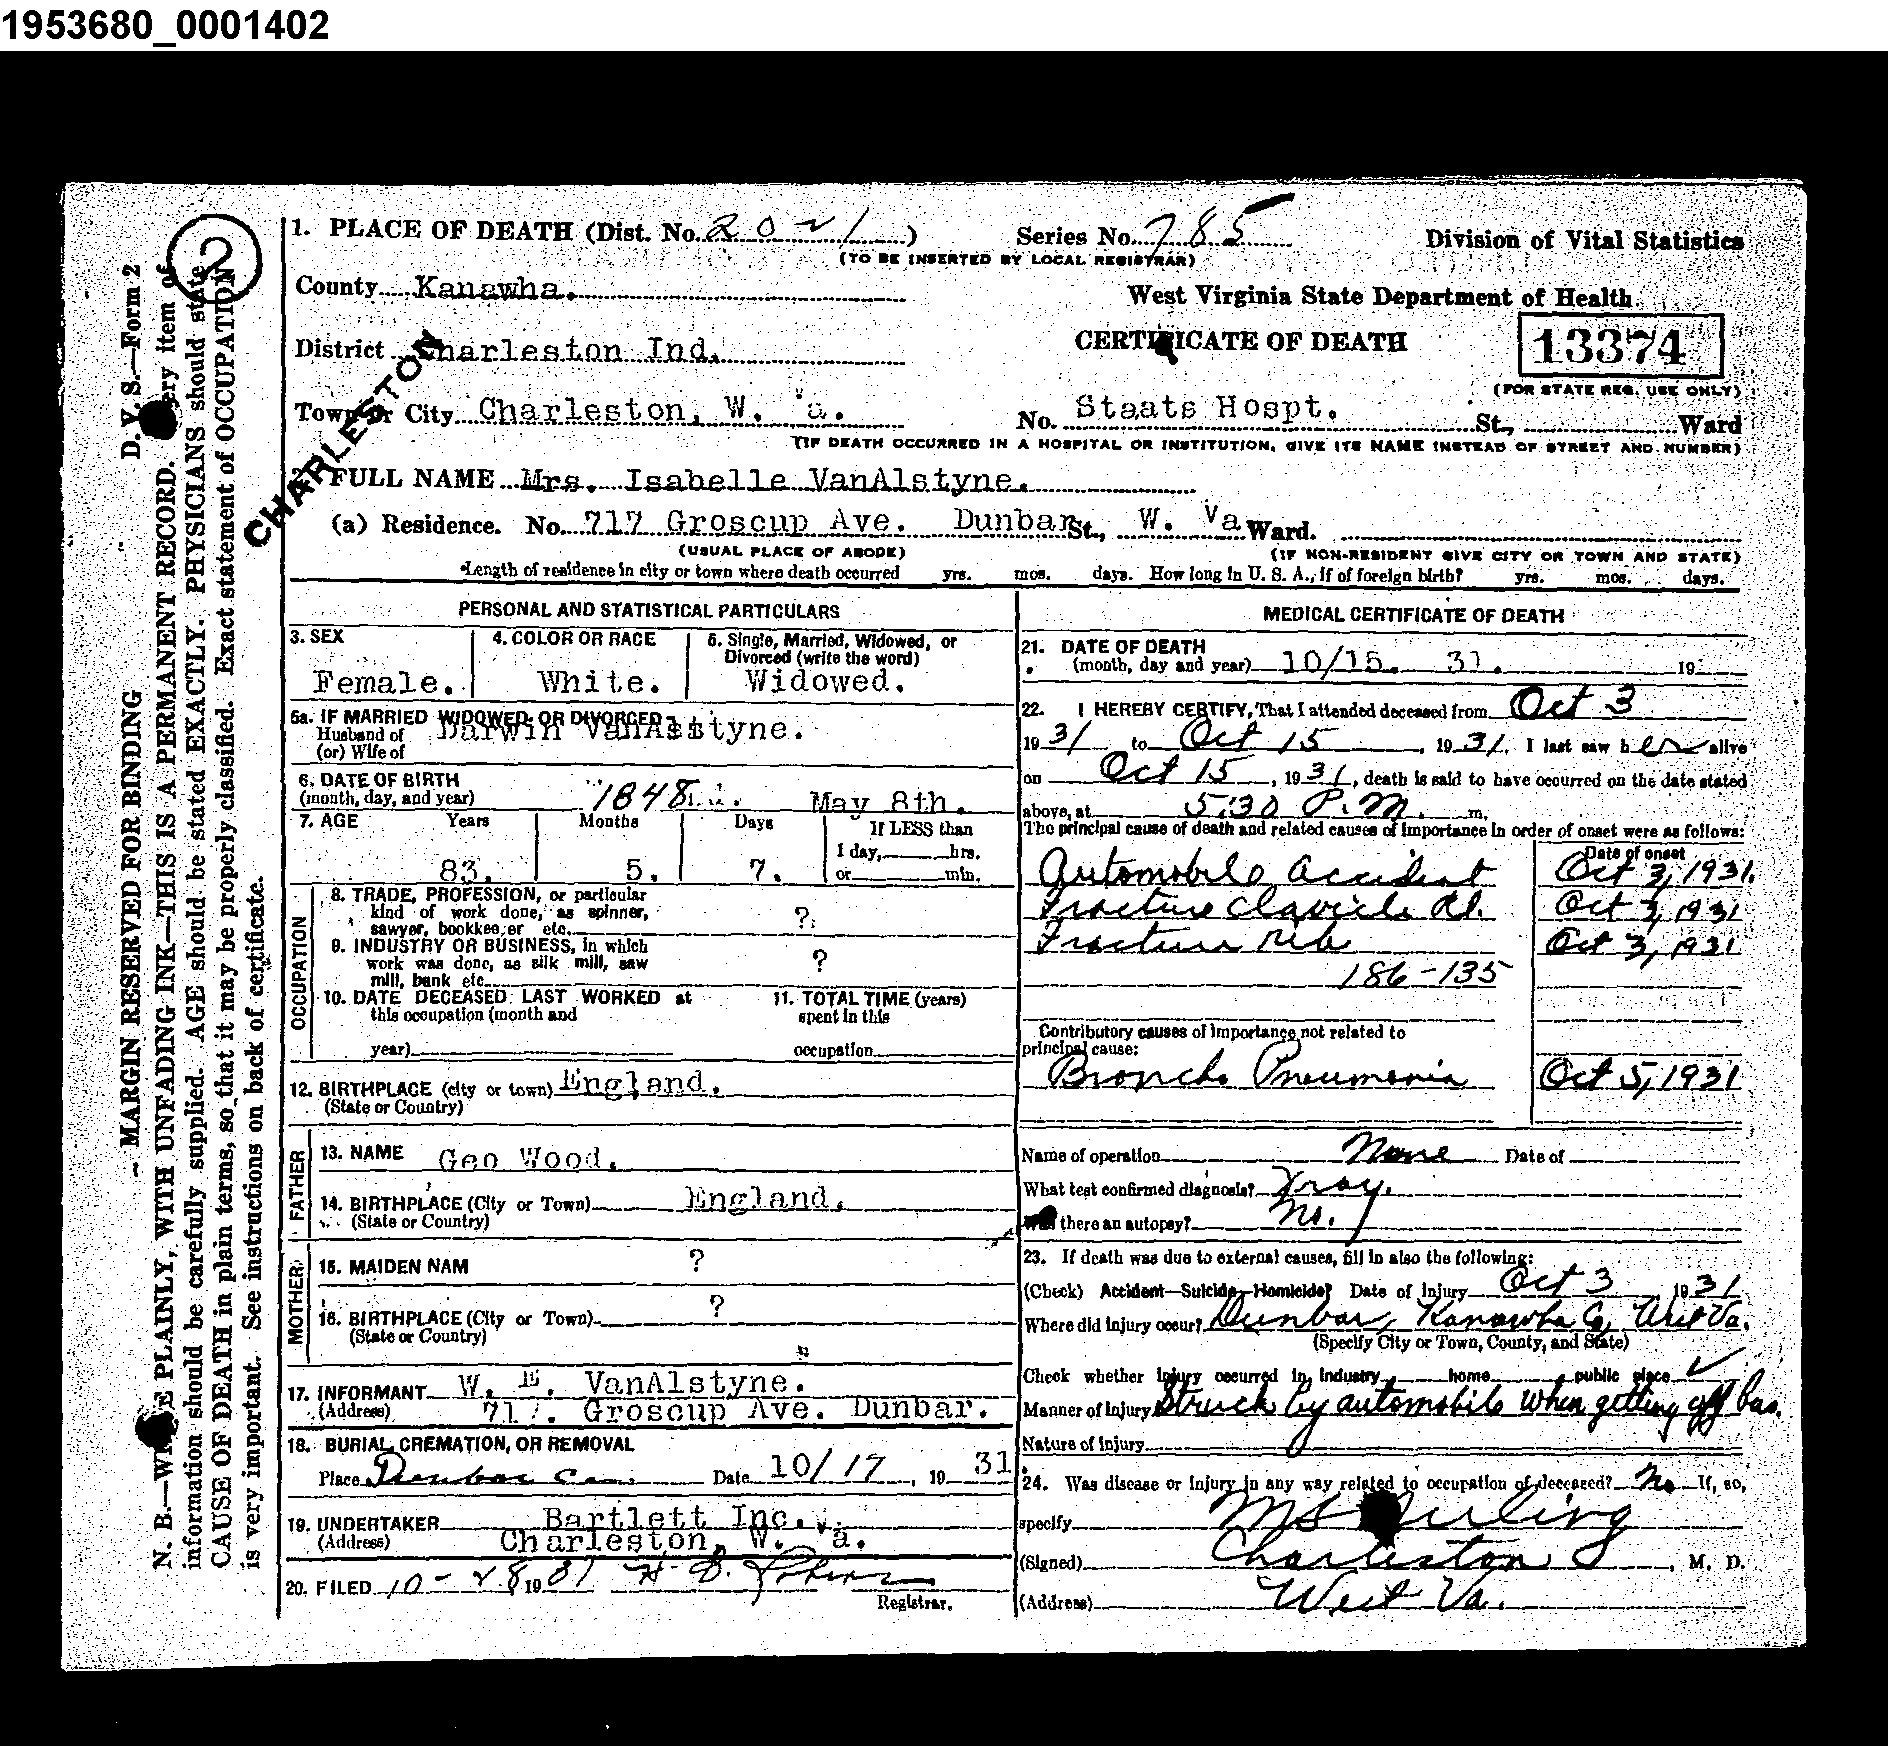 1953680_0001402
1. PLACE OF DEATH (Dist. No. 2021)
Series No. 785
(TO BE INSERTED BY LOCAL REGISTRAR)
Division of Vital Statistics
County Kanawha.
West Virginia State Department of Health
District Charleston Ind.
CERTIFICATE OF DEATH
13374
(FOR STATE REG. USE ONLY)
Town or City Charleston, W. Va.
No. Staats Hospt. St., Ward
(IF DEATH OCCURRED IN A HOSPITAL OR INSTITUTION, GIVE ITS NAME INSTEAD OF STREET AND NUMBER)
CHARLESTON
2. FULL NAME Mrs. Isabelle VanAlstyne.
(a) Residence. No. 717 Groscup Ave. Dunbar St., W. Va Ward.
(USUAL PLACE OF ABODE) (IF NON-RESIDENT GIVE CITY OR TOWN AND STATE)
Length of residence in city or town where death occurred yrs. mos. days. How long in U. S. A., if of foreign birth? yrs. mos. days.
PERSONAL AND STATISTICAL PARTICULARS
3. SEX
Female.
4. COLOR OR RACE
White.
5. Single, Married, Widowed, or
Divorced (write the word)
Widowed.
5a. IF MARRIED WIDOWED OR DIVORCED
Husband of Darwin VanAlstyne.
(or) Wife of
6. DATE OF BIRTH
(month, day, and year) 1848 May 8th.
7. AGE Years Months Days If LESS than
1 day, hrs.
83. 5. 7. or min.
OCCUPATION
8. TRADE, PROFESSION, or particular
kind of work done, as spinner, ?
sawyer, bookkeeper etc.
9. INDUSTRY OR BUSINESS, in which
work was done, as silk mill, saw ?
mill, bank etc
10. DATE DECEASED LAST WORKED at
this occupation (month and
year)
11. TOTAL TIME (years)
spent in this
occupation
12. BIRTHPLACE (city or town) England.
(State or Country)
FATHER
13. NAME Geo Wood.
14. BIRTHPLACE (City or Town) England.
(State or Country)
MOTHER
15. MAIDEN NAM ?
16. BIRTHPLACE (City or Town) ?
(State or Country)
17. INFORMANT W. E. VanAlstyne.
(Address) 717. Groscup Ave. Dunbar.
18. BURIAL, CREMATION, OR REMOVAL
Place Dunbar Cem. Date 10/17, 19 31.
19. UNDERTAKER Bartlett Inc.
(Address) Charleston, W. Va.
20. FILED 10-28 1931 H. B.
Registrar.
MEDICAL CERTIFICATE OF DEATH
21. DATE OF DEATH
(month, day and year) 10/15. 31. 19
22. I HEREBY CERTIFY, That I attended deceased from Oct 3
1931 to Oct 15, 1931. I last saw her alive
on Oct 15, 1931, death is said to have occurred on the date stated
above, at 5:30 P.M. m.
The principal cause of death and related causes of importance in order of onset were as follows:
Date of onset
Automobile accident Oct 3, 1931.
Fracture Clavicle Rt. Oct 3, 1931
Fracture rib Oct 3, 1931
186-135
Contributory causes of importance not related to
principal cause:
Broncho Pneumonia Oct 5, 1931
Name of operation None Date of
What test confirmed diagnosis? Xray.
Was there an autopsy? No.
23. If death was due to external causes, fill in also the following:
(Check) Accident—Suicide—Homicide? Date of Injury Oct 3 1931
Where did injury occur? Dunbar, Kanawha Co, West Va.
(Specify City or Town, County, and State)
Check whether injury occurred in industry home public place ✓
Manner of injury Struck by automobile when getting off bus.
Nature of injury
24. Was disease or injury in any way related to occupation of deceased? No If, so,
specify
(Signed) Charleston, M. D.
(Address) West Va.
D. V. S.—Form 2
MARGIN RESERVED FOR BINDING
N. B.—WRITE PLAINLY, WITH UNFADING INK—THIS IS A PERMANENT RECORD. Every item of
information should be carefully supplied. AGE should be stated EXACTLY. PHYSICIANS should state
CAUSE OF DEATH in plain terms, so that it may be properly classified. Exact statement of OCCUPATION
is very important. See instructions on back of certificate.
2